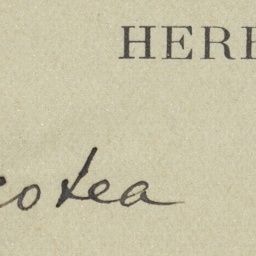 HERB
cotea